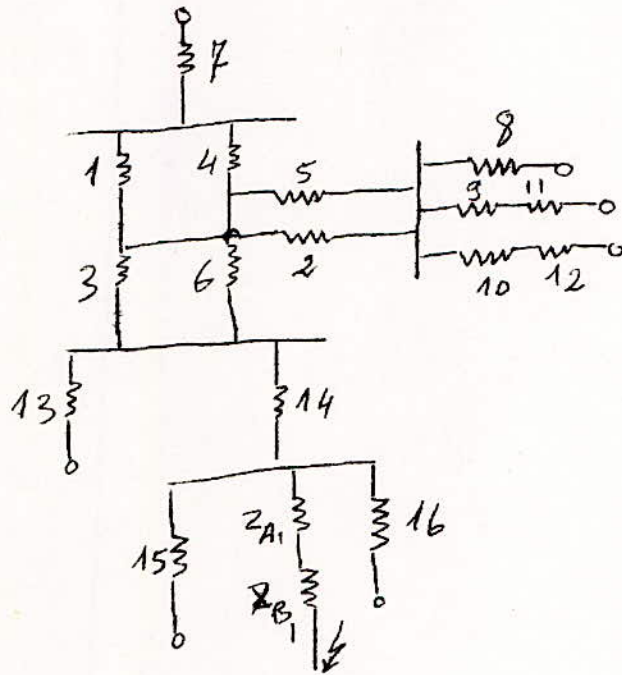 7
8
1
4
5
9
11
3
6
2
10
12
13
14
15
Z_A1
16
Z_B1